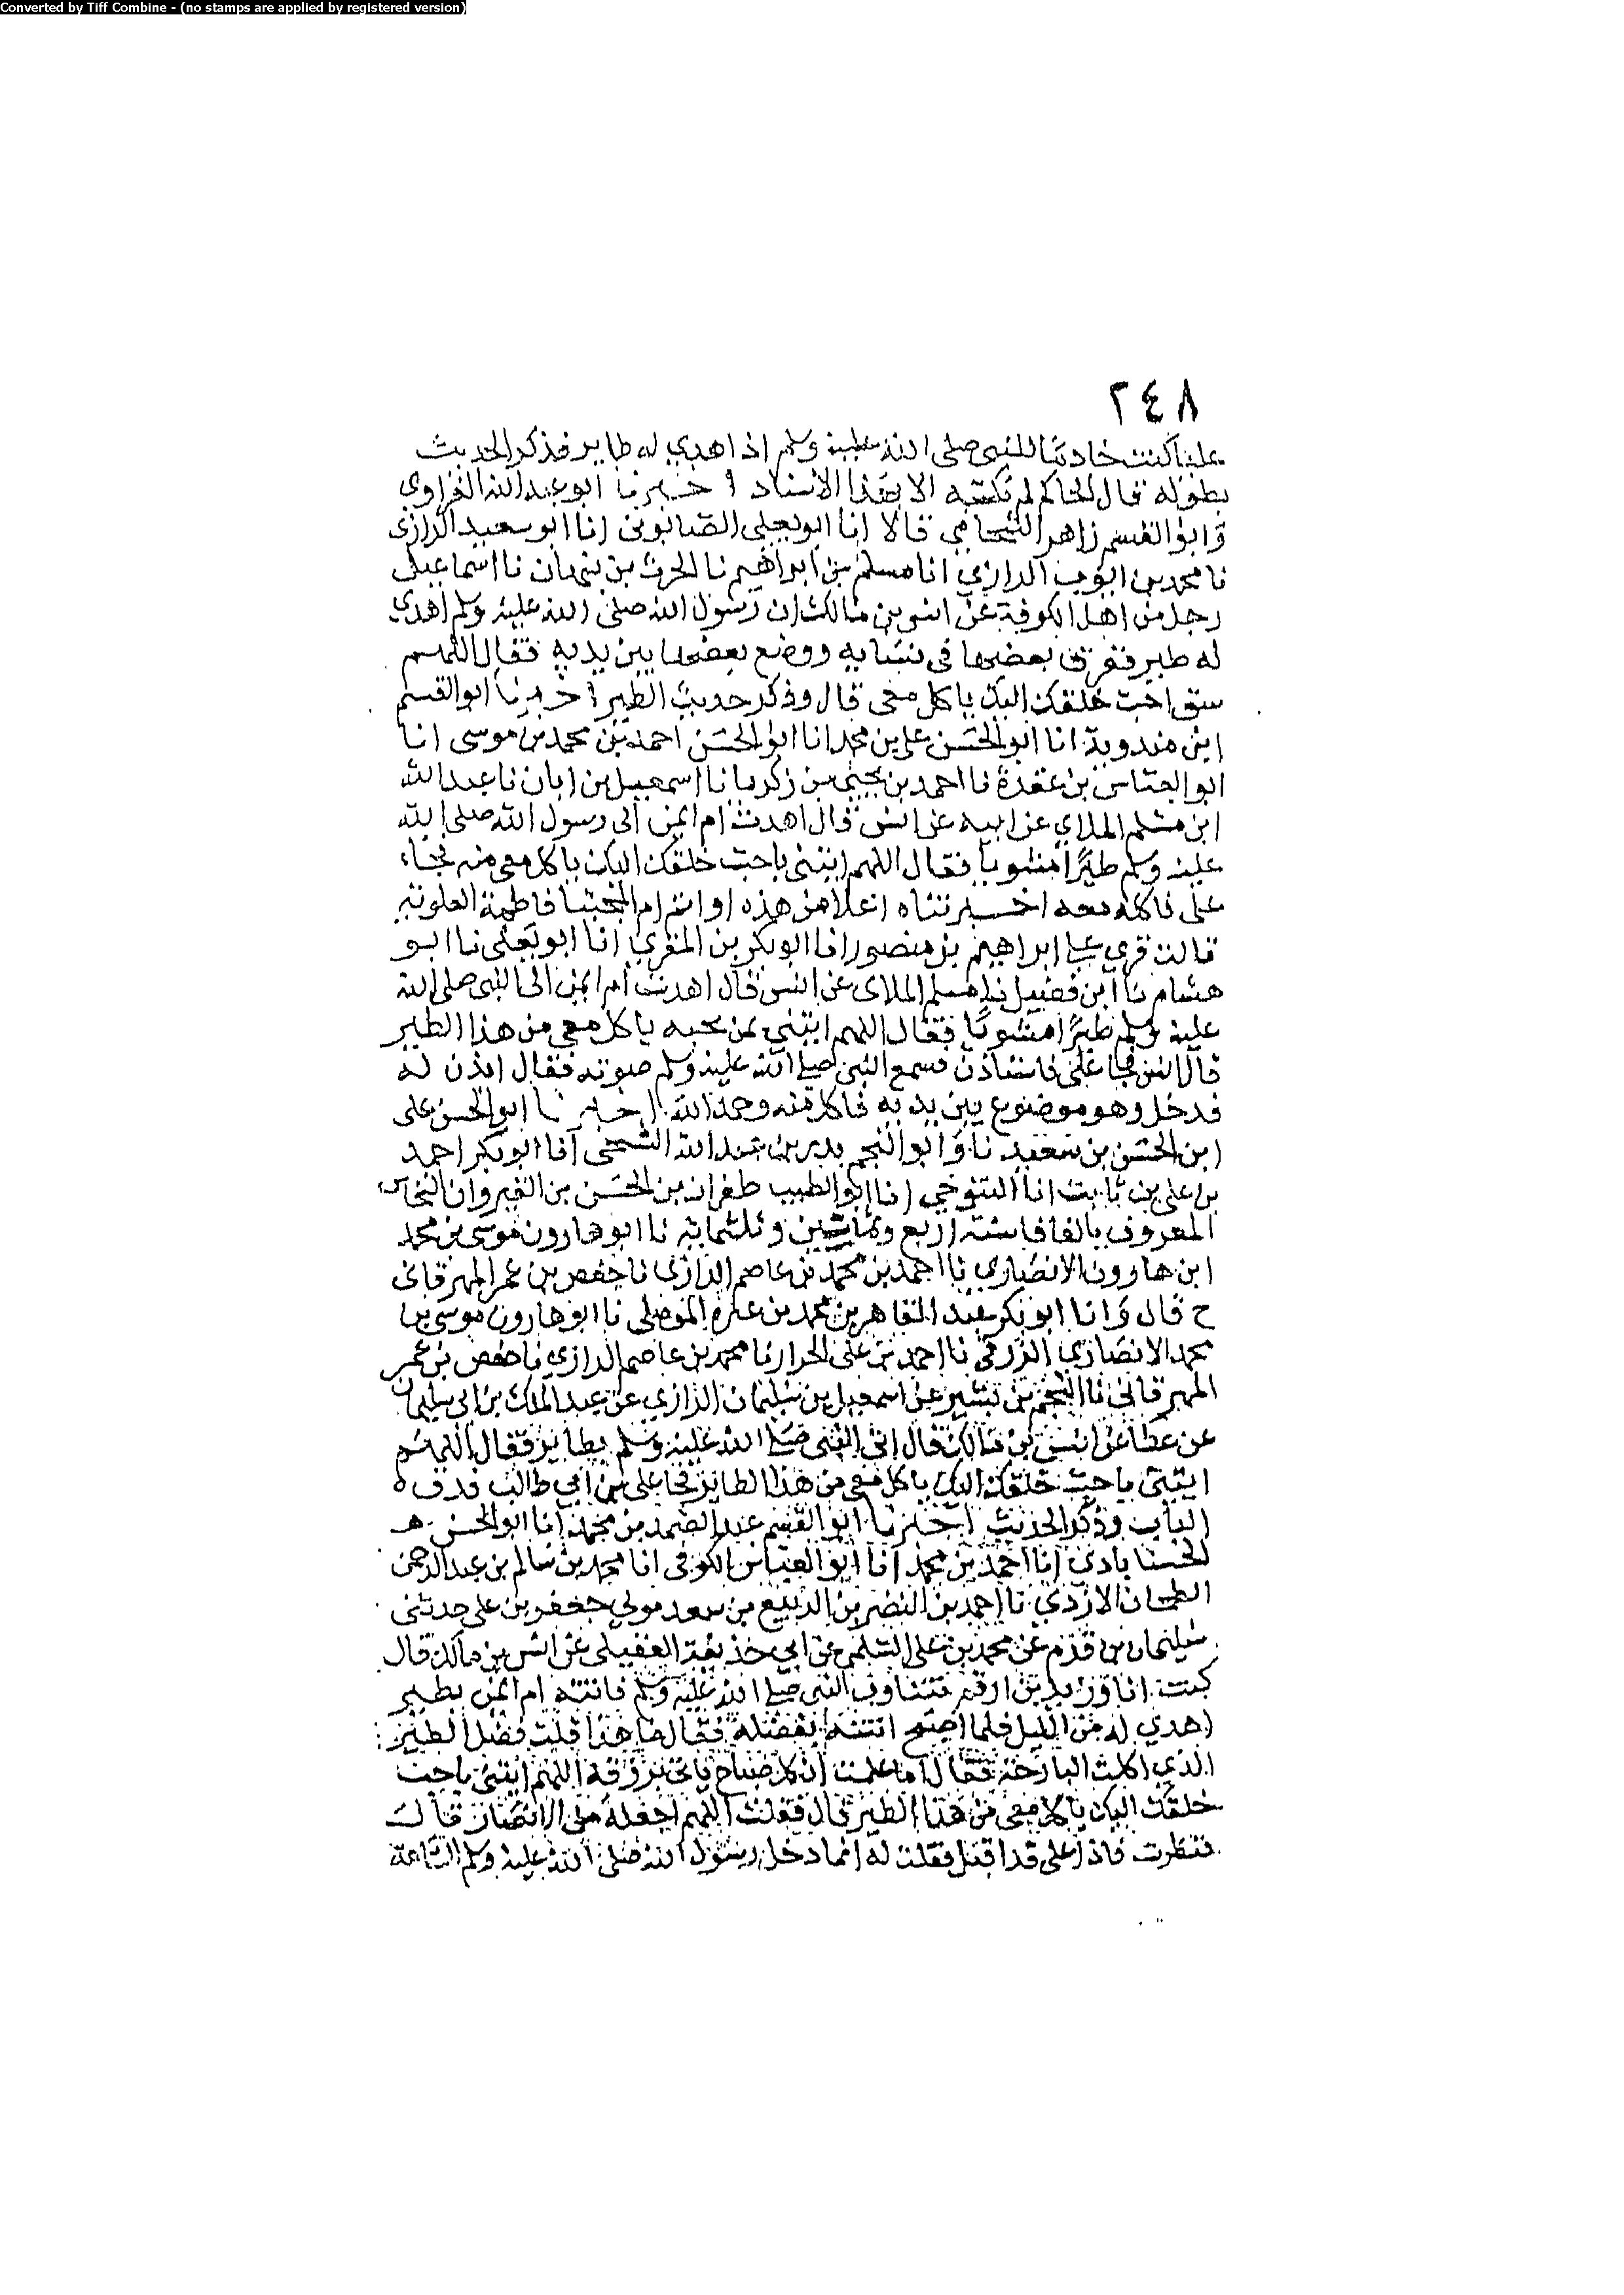 Converted by Tiff Combine - (no stamps are applied by registered version)
٢٤٨
كنت خادما للنبي صلى الله عليه وسلم اذ اهدي له طاير فذكر الحديث
بطوله قال الحاكم لم نكتبه الا بهذا الاسناد اخبرنا ابو عبد الله الفراوي
وابو القسم زاهر الشحامي قالا انا ابو يعلى الصابوني انا ابو سعيد الرازي
نا محمد بن ايوب الرازي انا مسلم بن ابراهيم نا الحرث بن نبهان نا اسماعيل
رجل من اهل الكوفة عن انس بن مالك ان رسول الله صلى الله عليه وسلم اهدي
له طير ففرق بعضها في نسايه ووضع بعضها بين يديه فقال اللهم
سق احب خلقك اليك ياكل معي قال وذكر حديث الطير اخبرنا ابو القسم
ابن مندوية انا ابو الحسن علي بن محمد انا ابو الحسن احمد بن محمد بن موسى انا
ابو العباس بن عقدة نا احمد بن يحيى بن زكريا نا اسمعيل بن ابان نا عبد الله
ابن مسلم الملاي عن ابيه عن انس قال اهدت ام ايمن الى رسول الله صلى الله
عليه وسلم طيرا مشويا فقال اللهم ايتني باحب خلقك اليك ياكل معي منه فجاء
علي فاكله معه اخبرتناه اعلا من هذه او ام المجتبا فاطمة العلوية
قالت قري على ابراهيم بن منصور انا ابو بكر بن المقري انا ابو يعلى نا ابو
هشام نا ابن فضيل نا مسلم الملاي عن انس قال اهدت ام ايمن الى النبي صلى الله
عليه وسلم طيرا مشويا فقال اللهم ايتني بمن تحبه ياكل معي من هذا الطير
قال انس فجا علي فاستاذن فسمع النبي صلى الله عليه وسلم صوته فقال ايذن له
فدخل وهو موضوع بين يديه فاكل منه وحمد الله اخبرنا ابو الحسن علي
ابن الحسن بن سعيد نا وابو النجم بدر بن عبد الله الشيحي انا ابو بكر احمد
بن علي بن ثابت انا التنوخي انا ابو الطيب طفران بن الحسن بن الفيروان النخاس
المعروف سنة اربع وثمانين وثلثماية نا ابو هارون موسى بن محمد
ابن هارون الانصاري نا احمد بن محمد بن عاصم الرازي نا حفص بن عمر المهرقاني
ح قال وانا ابو بكر عبد القاهر بن محمد بن عترة الموصلي نا ابو هارون موسى بن
محمد الانصاري الزرقي نا احمد بن علي الخراز نا محمد بن عاصم الرازي نا حفص بن عمر
المهرقاني نا النجم بن بشير عن اسمعيل بن سليمان الرازي عن عبد الملك بن ابي سليمان
عن عطا عن انس بن مالك قال اتي النبي صلى الله عليه وسلم بطاير فقال اللهم
ايتني باحب خلقك اليك ياكل معي من هذا الطاير فجا علي بن ابي طالب فدق
الباب وذكر الحديث اخبرنا ابو القسم عبد الصمد بن محمد انا ابو الحسن
الحسنابادي انا احمد بن محمد انا ابو العباس الكوفي انا محمد بن سالم بن عبد الرحمن
الطحان الازدي نا احمد بن النضر بن الربيع بن سعد مولى جعفر بن علي حدثني
سليمان بن قرم عن محمد بن علي السلمي عن ابي حذيفة العقيلي عن انس بن مالك قال
كنت انا وزيد بن ارقم نتناوب النبي صلى الله عليه وسلم فاتته ام ايمن بطير
اهدي له من الليل فلما اصبح اتته بفضله فقال ما هذا قلت فضل الطير
الذي اكلت البارحة فقال اما علمت ان كل صباح ياتي برزقه اللهم ايتني باحب
خلقك اليك ياكل معي من هذا الطير قال فقلت اللهم اجعله من الانصار قال
فنظرت فاذا علي قد اقبل فقلت له انما دخل رسول الله صلى الله عليه وسلم الساعة